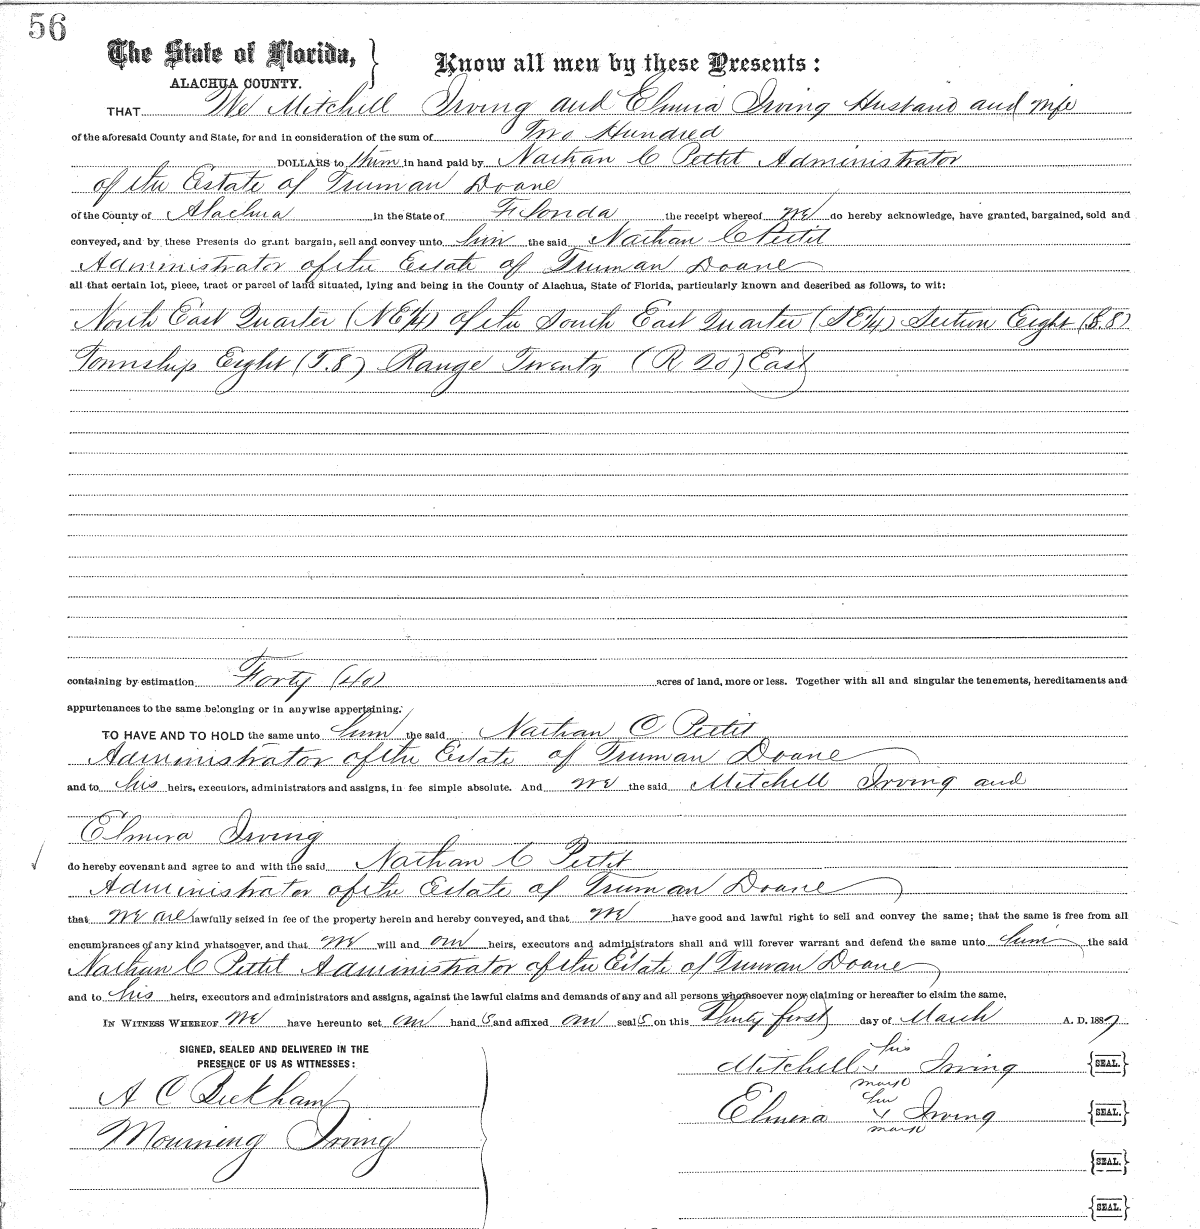 56
The State of Florida, } Know all men by these Presents:
ALACHUA COUNTY.
THAT We Mitchell Irving and Elmira Irving Husband and wife
of the aforesaid County and State, for and in consideration of the sum of Two Hundred
DOLLARS to them in hand paid by Nathan C Pettit Administrator
of the Estate of Truman Doane
of the County of Alachua in the State of Florida the receipt whereof we do hereby acknowledge, have granted, bargained, sold and
conveyed, and by these Presents do grant bargain, sell and convey unto him the said Nathan C Pettit
Administrator of the Estate of Truman Doane
all that certain lot, piece, tract or parcel of land situated, lying and being in the County of Alachua, State of Florida, particularly known and described as follows, to wit:
North East Quarter (NE 1/4) of the South East Quarter (SE 1/4) Section Eight (S.8)
Township Eight (T.8) Range Twenty (R 20) East
containing by estimation Forty (40) acres of land, more or less. Together with all and singular the tenements, hereditaments and
appurtenances to the same belonging or in anywise appertaining.
TO HAVE AND TO HOLD the same unto him the said Nathan C Pettit
Administrator of the Estate of Truman Doane
and to his heirs, executors, administrators and assigns, in fee simple absolute. And we the said Mitchell Irving and
Elmira Irving
do hereby covenant and agree to and with the said Nathan C Pettit
Administrator of the Estate of Truman Doane
that we are lawfully seized in fee of the property herein and hereby conveyed, and that we have good and lawful right to sell and convey the same; that the same is free from all
encumbrances of any kind whatsoever, and that we will and our heirs, executors and administrators shall and will forever warrant and defend the same unto him the said
Nathan C Pettit Administrator of the Estate of Truman Doane
and to his heirs, executors and administrators and assigns, against the lawful claims and demands of any and all persons whomsoever now claiming or hereafter to claim the same.
IN WITNESS WHEREOF we have hereunto set our hand s and affixed our seal s on this Thirty first day of March A. D. 1887
SIGNED, SEALED AND DELIVERED IN THE
PRESENCE OF US AS WITNESSES:
his
Mitchell x Irving {SEAL.}
mark
A C Beckham
her
Elmira x Irving {SEAL.}
mark
Mourning Irving
{SEAL.}
{SEAL.}